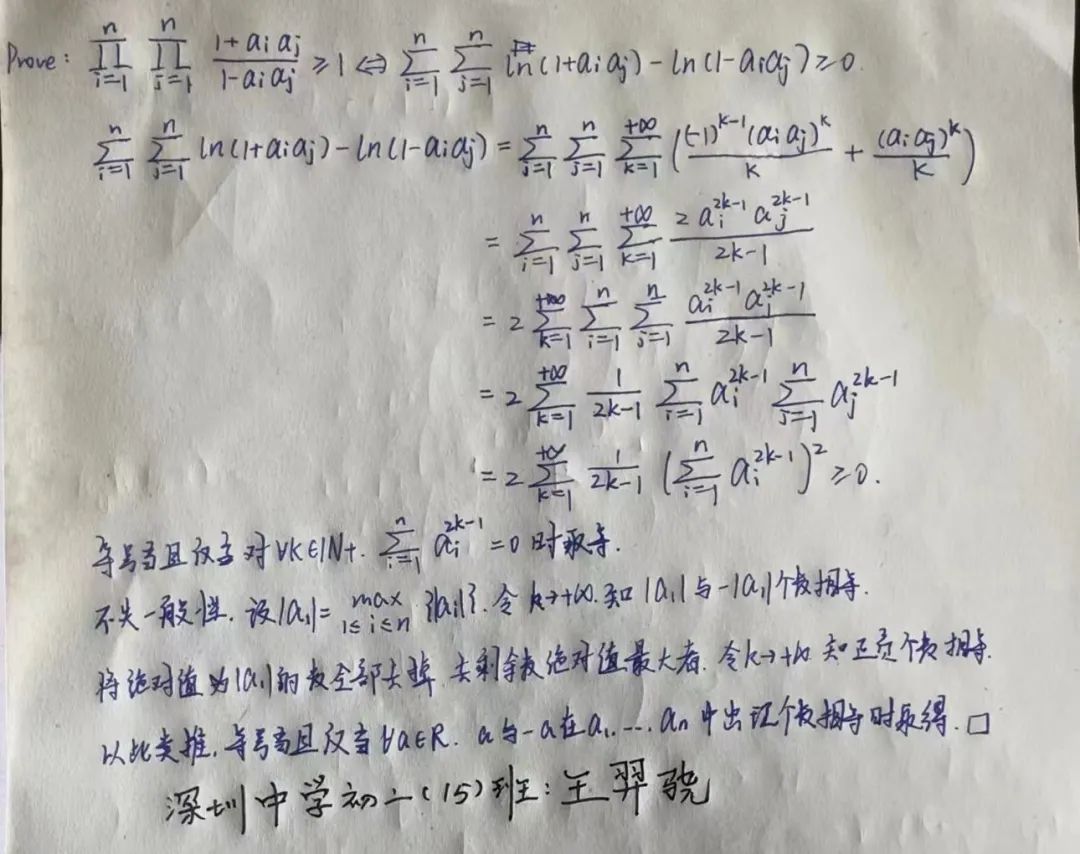 Prove: $\prod_{i=1}^{n} \prod_{j=1}^{n} \frac{1+a_i a_j}{1-a_i a_j} \geq 1 \Leftrightarrow \sum_{i=1}^{n} \sum_{j=1}^{n} \ln(1+a_i a_j) - \ln(1-a_i a_j) \geq 0.$
$\sum_{i=1}^{n} \sum_{j=1}^{n} \ln(1+a_i a_j) - \ln(1-a_i a_j) = \sum_{i=1}^{n} \sum_{j=1}^{n} \sum_{k=1}^{+\infty} \left( \frac{(-1)^{k-1} (a_i a_j)^k}{k} + \frac{(a_i a_j)^k}{k} \right)$
$= \sum_{i=1}^{n} \sum_{j=1}^{n} \sum_{k=1}^{+\infty} \frac{2 a_i^{2k-1} a_j^{2k-1}}{2k-1}$
$= 2 \sum_{k=1}^{+\infty} \sum_{i=1}^{n} \sum_{j=1}^{n} \frac{a_i^{2k-1} a_j^{2k-1}}{2k-1}$
$= 2 \sum_{k=1}^{+\infty} \frac{1}{2k-1} \sum_{i=1}^{n} a_i^{2k-1} \sum_{j=1}^{n} a_j^{2k-1}$
$= 2 \sum_{k=1}^{+\infty} \frac{1}{2k-1} \left( \sum_{i=1}^{n} a_i^{2k-1} \right)^2 \geq 0.$
等号当且仅当对 ∀k∈N+. $\sum_{i=1}^{n} a_i^{2k-1} = 0$ 时取等.
不失一般性. 设|a₁|= $\max_{1 \leq i \leq n} \{|a_i|\}$. 令 k→+∞. 知 |a₁| 与 -|a₁| 个数相等.
将绝对值为|a₁|的数全部去掉. 去剩余数绝对值最大者. 令k→+∞ 知正负个数相等.
以此类推, 等号当且仅当 ∀a∈R. a与-a在a₁,...,aₙ中出现个数相等时取得. □
深圳中学初二(15)班: 王羿骁